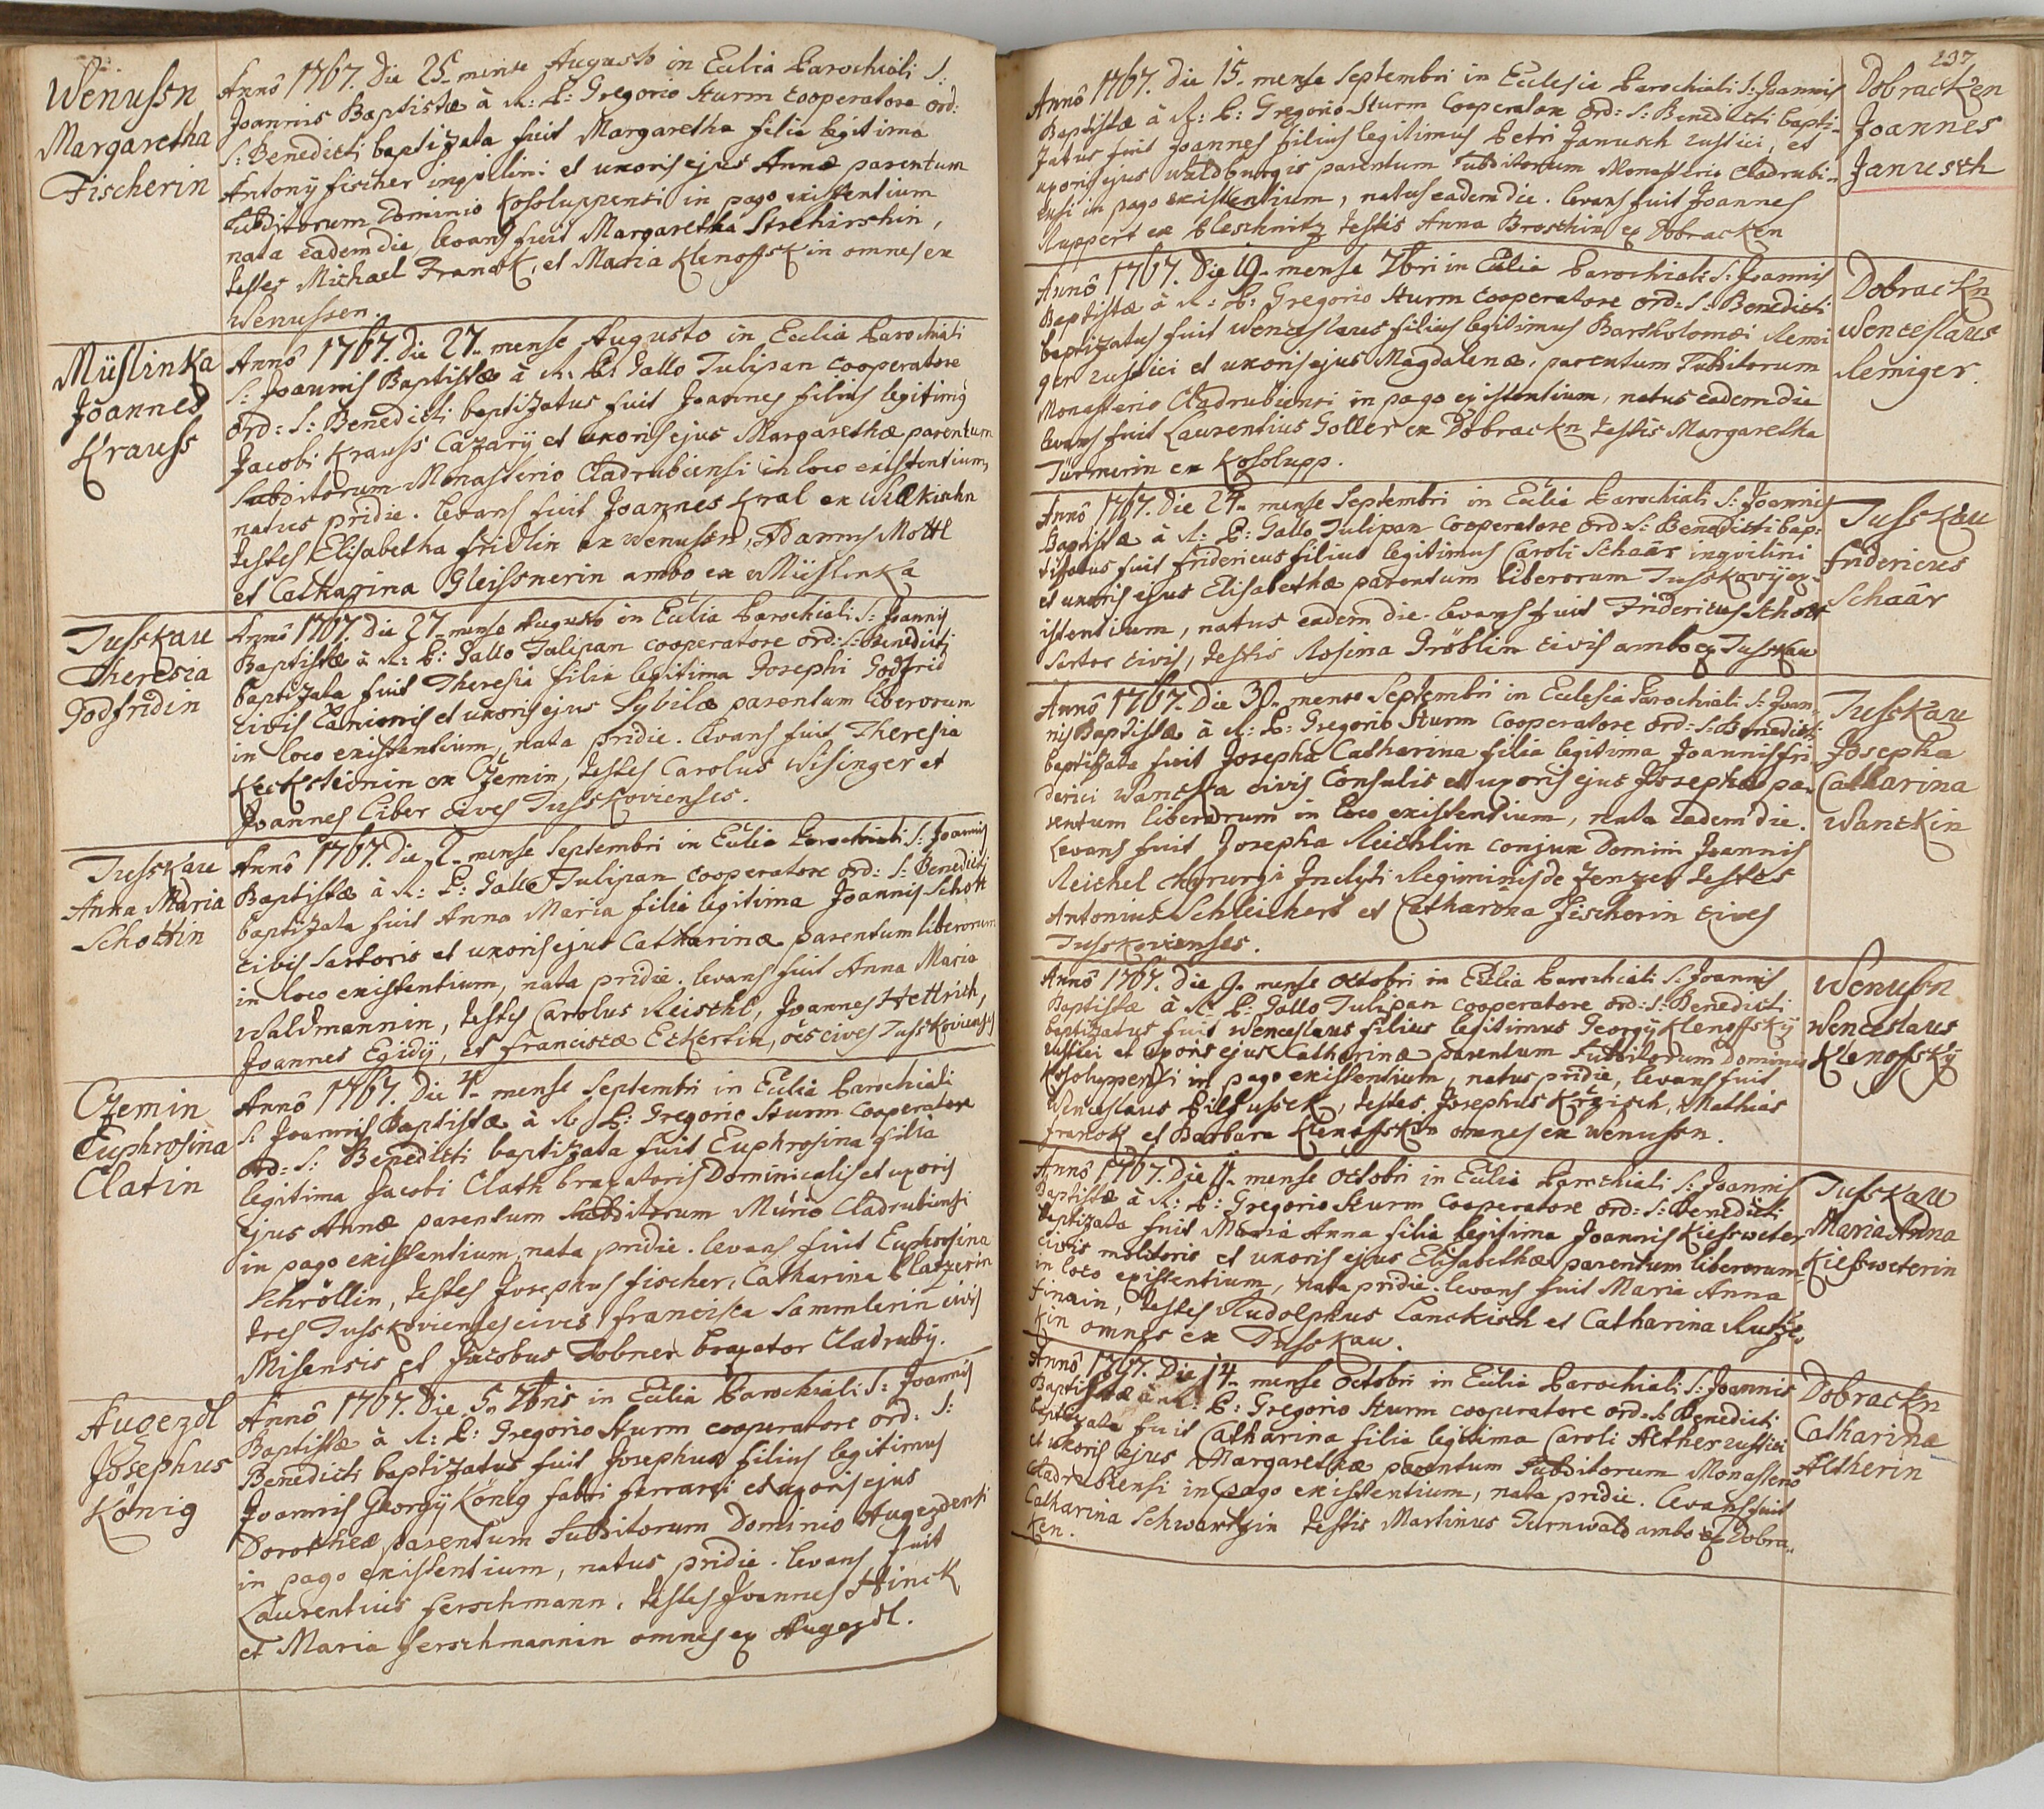 Wenussn
Margaretha
Fischerin
Anno 1767. Die 25. mense Augusto in Ecclia Parochiali S:
Joannis Baptistæ à R: P: Gregorio Sturm Cooperatore Ord:
S: Benedicti baptizata fuit Margaretha filia legitima
Antonÿ Fischer inqvilini et uxoris ejus Annæ parentum
subditorum Dominio Kosoluppensi in pago existentium
nata eadem die, levans fuit Margaretha Strehirshin,
testes Michael Franck, et Maria Klenoffskin omnes ex
Wenussen.
Müslinka
Joannes
Krauss
Anno 1767. Die 27. mense Augusto in Ecclia Parochiali
S: Joannis Baptistæ à R: P: Gallo Tulipan cooperatore
Ord: S: Benedicti baptizatus fuit Joannes filius legitimus
Jacobi Krauss Cazarÿ et uxoris ejus Margarethæ parentum
Subditorum Monasterio Cladrubiensi in loco existentium,
natus pridie. levans fuit Joannes Kral ex
testes Elisabetha Fridlin ex Wenussn, Adamus Mottl
et Catharina Gleissnerin ambo ex Müslinka
Tusskau
Theresia
Godfridin
Anno 1767. Die 27. mense Augusto in Ecclia Parochiali S: Joannis
Baptistæ à R: P: Gallo Tulipan cooperatore Ord: S: Benedicti
baptizata fuit Theresia filia legitima Josephi Godfrid
civis Lanionis et uxoris ejus Sybilæ parentum liberorum
in loco existentium, nata pridie. levans fuit Theresia
Kecksteinin ex Czemin, testes Carolus Wisinger et
Joannes Liber Cives Tusskovienses.
Tusskau
Anna Maria
Schottin
Anno 1767. Die 2. mense Septembri in Ecclia Parochiali S: Joannis
Baptistæ à R: P: Gallo Tulipan cooperatore Ord: S: Benedicti
baptizata fuit Anna Maria filia legitima Joannis Schott
civis Sartoris et uxoris ejus Catharinæ parentum liberorum
in loco existentium, nata pridie. levans fuit Anna Maria
Waldmannin, testes Carolus Reischl, Joannes Hettrich,
Joannes Egidÿ, et Franciscæ Eckertin, oes cives Tusskovienses
Czemin
Euphrosina
Clatin
Anno 1767. Die 4. mense Septembri in Ecclia Parochiali
S: Joannis Baptistæ à R P: Gregorio Sturm Cooperatore
Ord: S: Benedicti baptizata fuit Euphrosina filia
legitima Jacobi Clath braxatoris Dominicalis et uxoris
ejus Annæ parentum Subditorum Mñrio Cladrubiensi
in pago existentium, nata pridie. levans fuit Euphrosina
Schröllin, testes Josephus Fischer, Catharina Platzerin
tres Tusskovienses cives, Francisca Sammlerin civis
Misensis et Jacobus Dobner braxator Cladrubÿ.
Augezdl
Josephus
König
Anno 1767. Die 5. 7bris in Ecclia Parochiali S: Joannis
Baptistæ à R: P: Gregorio Sturm cooperatore Ord: S:
Benedicti baptizatus fuit Josephus filius legitimus
Joannis Georgÿ König fabri ferrarÿ et uxoris ejus
Dorotheæ parentum Subditorum Dominio Augezdensi
in pago existentium, natus pridie. levans fuit
Laurentius Ferschmann, testes Joannes Hinck
et Maria Ferschmannin omnes ex Augezdl.
237
Anno 1767. Die 15. mense Septembri in Ecclesia Parochiali S: Joannis
Baptistæ à R: P: Gregorio Sturm Cooperatore Ord: S: Benedicti bapti-
zatus fuit Joannes filius legitimus Petri Janusch rustici, et
uxoris ejus Waldburgis parentum Subditorum Monasterio Cladrubi-
ensi in pago existentium, natus eadem die. levans fuit Joannes
Ruppert ex Pleschnitz testis Anna Broschin ex Dobracken
Dobracken
Joannes
Janusch
Anno 1767. Die 19. mense 7bri in Ecclia Parochiali S: Joannis
Baptistæ à R: P: Gregorio Sturm Cooperatore Ord: S: Benedicti
baptizatus fuit Wenceslaus filius legitimus Bartholomæi Remi
ger rustici et uxoris ejus Magdalenæ, parentum Subditorum
Monasterio Cladrubiensi in pago existentium, natus eadem die
levans fuit Laurentius Goller ex Dobrackn testis Margaretha
Türmerin ex Kosolupp.
Dobrackn
Wenceslaus
Remiger.
Anno 1767. Die 24. mense Septembri in Ecclia Parochiali S: Joannis
Baptistæ à R: P: Gallo Tulipan Cooperatore Ord: S: Benedicti bap-
tizatus fuit Fridericus filius legitimus Caroli Schaär inqvilini
et uxoris ejus Elisabethæ parentum liberorum Tusskovÿ ex-
istentium, natus eadem die. levans fuit Fridericus Schott
Sartor Civis, testis Rosina Gröblin Civis ambo ex Tusskau
Tusskau
Fridericus
Schaär
Anno 1767. Die 30. mense Septembri in Ecclesia Parochiali S: Joan-
nis Baptistæ à R: P: Gregorio Sturm Cooperatore Ord: S: Benedicti
baptizata fuit Josepha Catharina filia legitima Joannis Fri-
derici Wanczka civis Consulis et uxoris ejus Josephæ pa-
rentum liberorum in loco existentium, nata eadem die.
Levans fuit Josepha Reichlin conjux Domini Joannis
Reichel Chyrurgi Inclyti Regiminis de Zenzer testes
Antonius Schleichert et Catharina Fischerin Cives
Tusskovienses.
Tusskau
Josepha
Catharina
Wanckin
Anno 1767. Die 9. mense Octobri in Ecclia Parochiali S: Joannis
Baptistæ à R: P: Gallo Tulipan Cooperatore Ord: S: Benedicti
baptizatus fuit Wenceslaus filius legitimus Georgÿ Klenoffskÿ
rustici et uxoris ejus Catharinæ parentum Subditorum Dominio
Kosoluppensi in pago existentium, natus pridie, levans fuit
Wenceslaus Pilsussek, testes Josephus Krzisch, Mathias
Franck et Barbara Klenoffskin omnes ex Wenussn.
Wenussn
Wenceslaus
Klenoffskÿ
Anno 1767. Die 11. mense Octobri in Ecclia Parochiali S: Joannis
Baptistæ à R: P: Gregorio Sturm Cooperatore Ord: S: Benedicti
baptizata fuit Maria Anna filia legitima Joannis Kiessweter
civis molitoris et uxoris ejus Elisabethæ parentum liberorum
in loco existentium, nata pridie. levans fuit Maria Anna
testes Rudolphus Lanckisch et Catharina Rutze-
kin omnes ex Tusskau.
Tusskau
Maria Anna
Kiessweterin
Anno 1767. Die 14. mense Octobri in Ecclia Parochiali S: Joannis
Baptistæ à R: P: Gregorio Sturm cooperatore Ord: S: Benedicti
baptizata fuit Catharina filia legitima Caroli Alther rustici
et uxoris ejus Margarethæ parentum Subditorum Monasterio
Cladrubiensi in pago existentium, nata pridie. levans fuit
Catharina Schwartzin testis Martinus Turnwald ambo ex Dobra-
ken.
Dobrackn
Catharina
Altherin